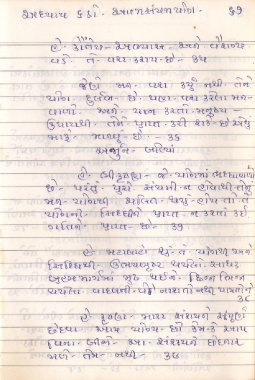 અધ્યાય ૬ઠ્ઠો. આત્મસંયમયોગ. ૬૭
હે કૌંતેય - અભ્યાસ અને વૈરાગ્ય
વડે તે વશ કરાય છે - ૩૫
જેણે મન વશ કર્યું નથી તેને
યોગ દુર્લભ છે પણ વશ કરેલા મન-
વાળો અને યત્ન કરતો મનુષ્ય -
ઉપાયથી તેને પ્રાપ્ત કરી શકે છે એવું
મારું માનવું છે - ૩૬
અર્જુન બોલ્યા
હે શ્રીકૃષ્ણ - જે યોગમાં શ્રદ્ધાવાળો
છે પરંતુ પુરો સંયમી ન હોવાથી તેનું
મન યોગથી ચલિત થયું હોય તો તે
યોગની સિદ્ધિને પ્રાપ્ત ન કરતાં કઈ
ગતિને પ્રાપ્ત થાય છે - ૩૭
હે મહાબાહો શું તે યોગથી અને
સિદ્ધિથી ઉભયભ્રષ્ટ થયેલો
બ્રહ્મમાર્ગમાં મૂઢ થઈને છિન્ન ભિન્ન
થયેલા વાદળની પેઠે નાશ તો નથી પામતોને
૩૮
હે કૃષ્ણ - મારા સંશયને સંપૂર્ણ
છેદવા આપ યોગ્ય છો કેમકે આપ
વિના બીજો આ સંશયને છેદનાર
મળે તેમ નથી - ૩૯